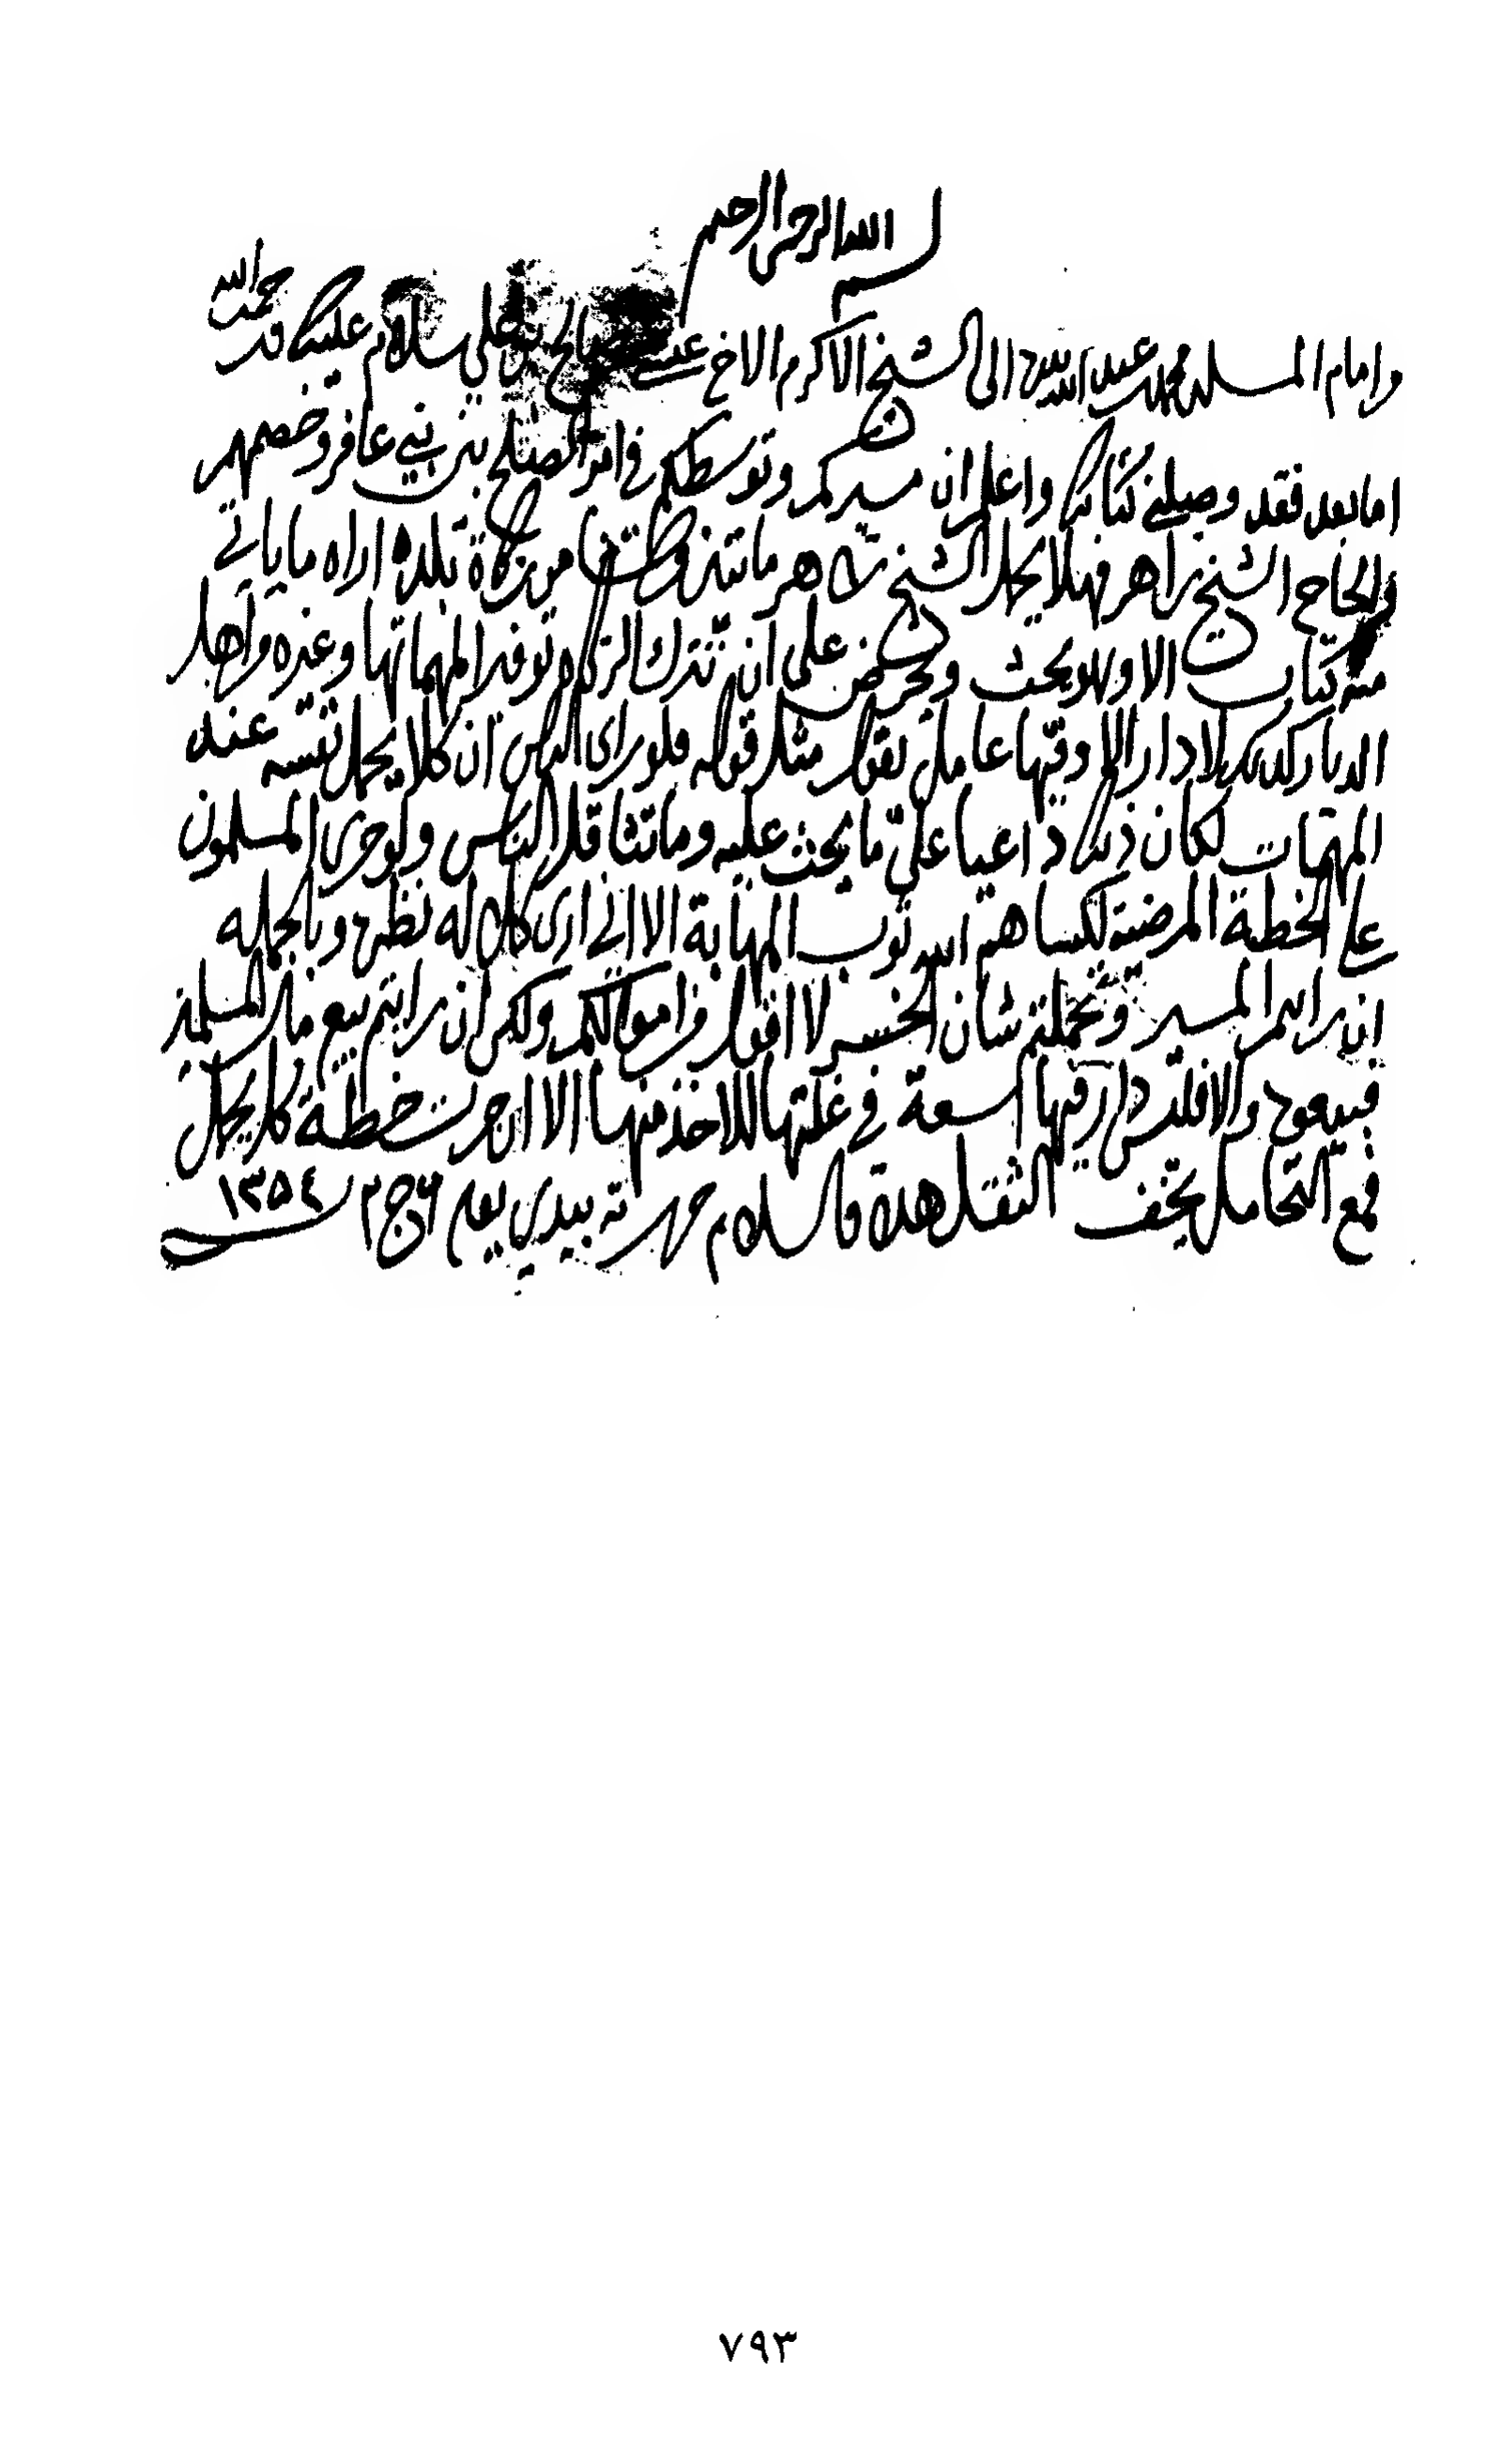 بسم الله الرحمن الرحيم
من امام المسلمين محمد بن عبد الله الى الشيخ الاكرم الاخ عيسى بن صالح بن علي سلام عليك ورحمة الله
اما بعد فقد وصلني كتابك واعلم ان مسيركم وتوسطكم في امر الصلح بين بني عافر وخصمهم
والحاج الشيخ زاهر فهلا يحمل الشيخ زاهر مائتين من زكاة بلده اراه ما ياتي
منه كتاب الا وهو يحث ويحرض على ان تترك الزكاة توفيرا لمهماتها وغيره من اهل
الديار كذلك لا دار الا وفيها عامل يقول مثل قوله فلو راى الناس ان كلا يحمل نفسه عند
المهمات لكان ذلك داعيا على ما يحث عليه وما تثاقل الناس ولو جرى المسلمون
على الخطة المرضية لكساهم الله ثوب المهابة الا اني ارى كلا له نظر وبالجملة
ان رايتم المسير وتحملتم شان الخسر لا اقول من اموالكم ولكن ان رايتم بيع مال المسلمين
فبيعوه والا فلتس دار فيها سعة في غلتها للاخذ منها الا ان جرت خطة كل يحمل
فمع التحامل يخف الثقل هذا والسلام حررته بيدي يوم ٦ ج ٢ سنة ١٣٥٤
٧٩٣